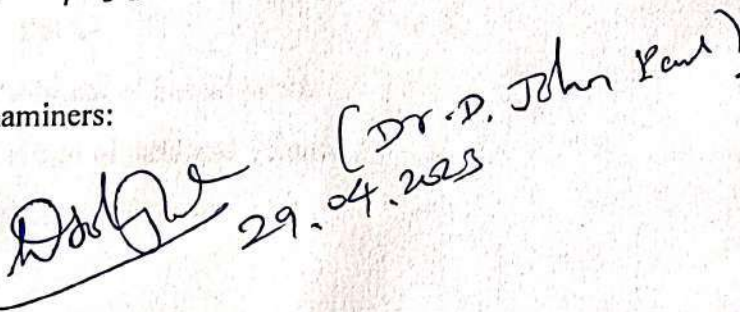 aminers:
(Dr. D. John Paul)
29.04.2023